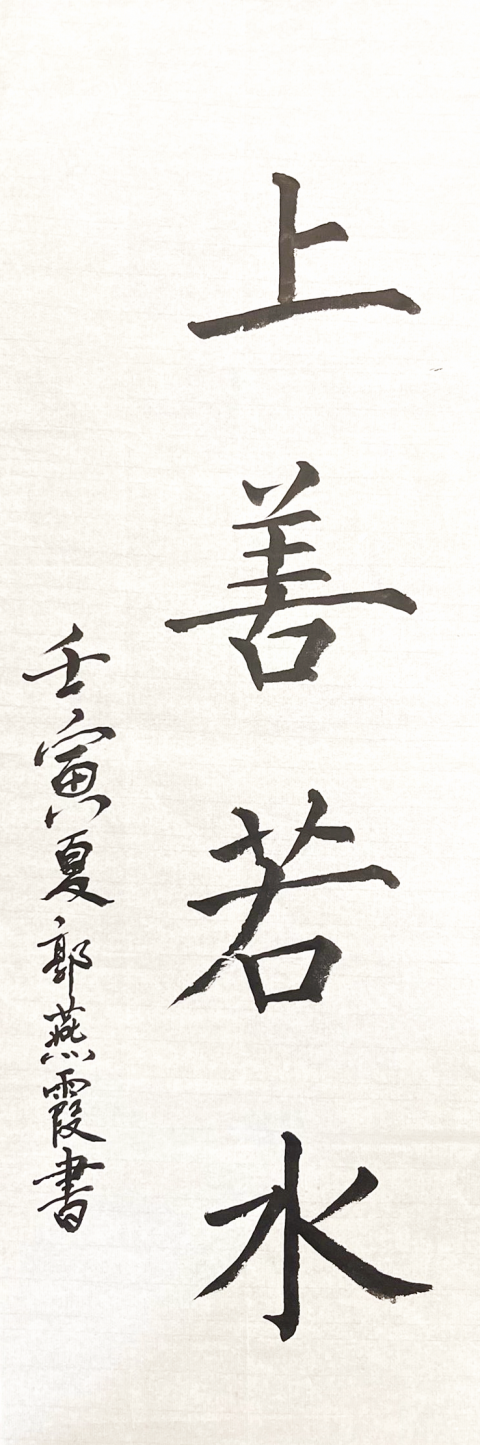 上善若水
壬寅夏郭燕霞書